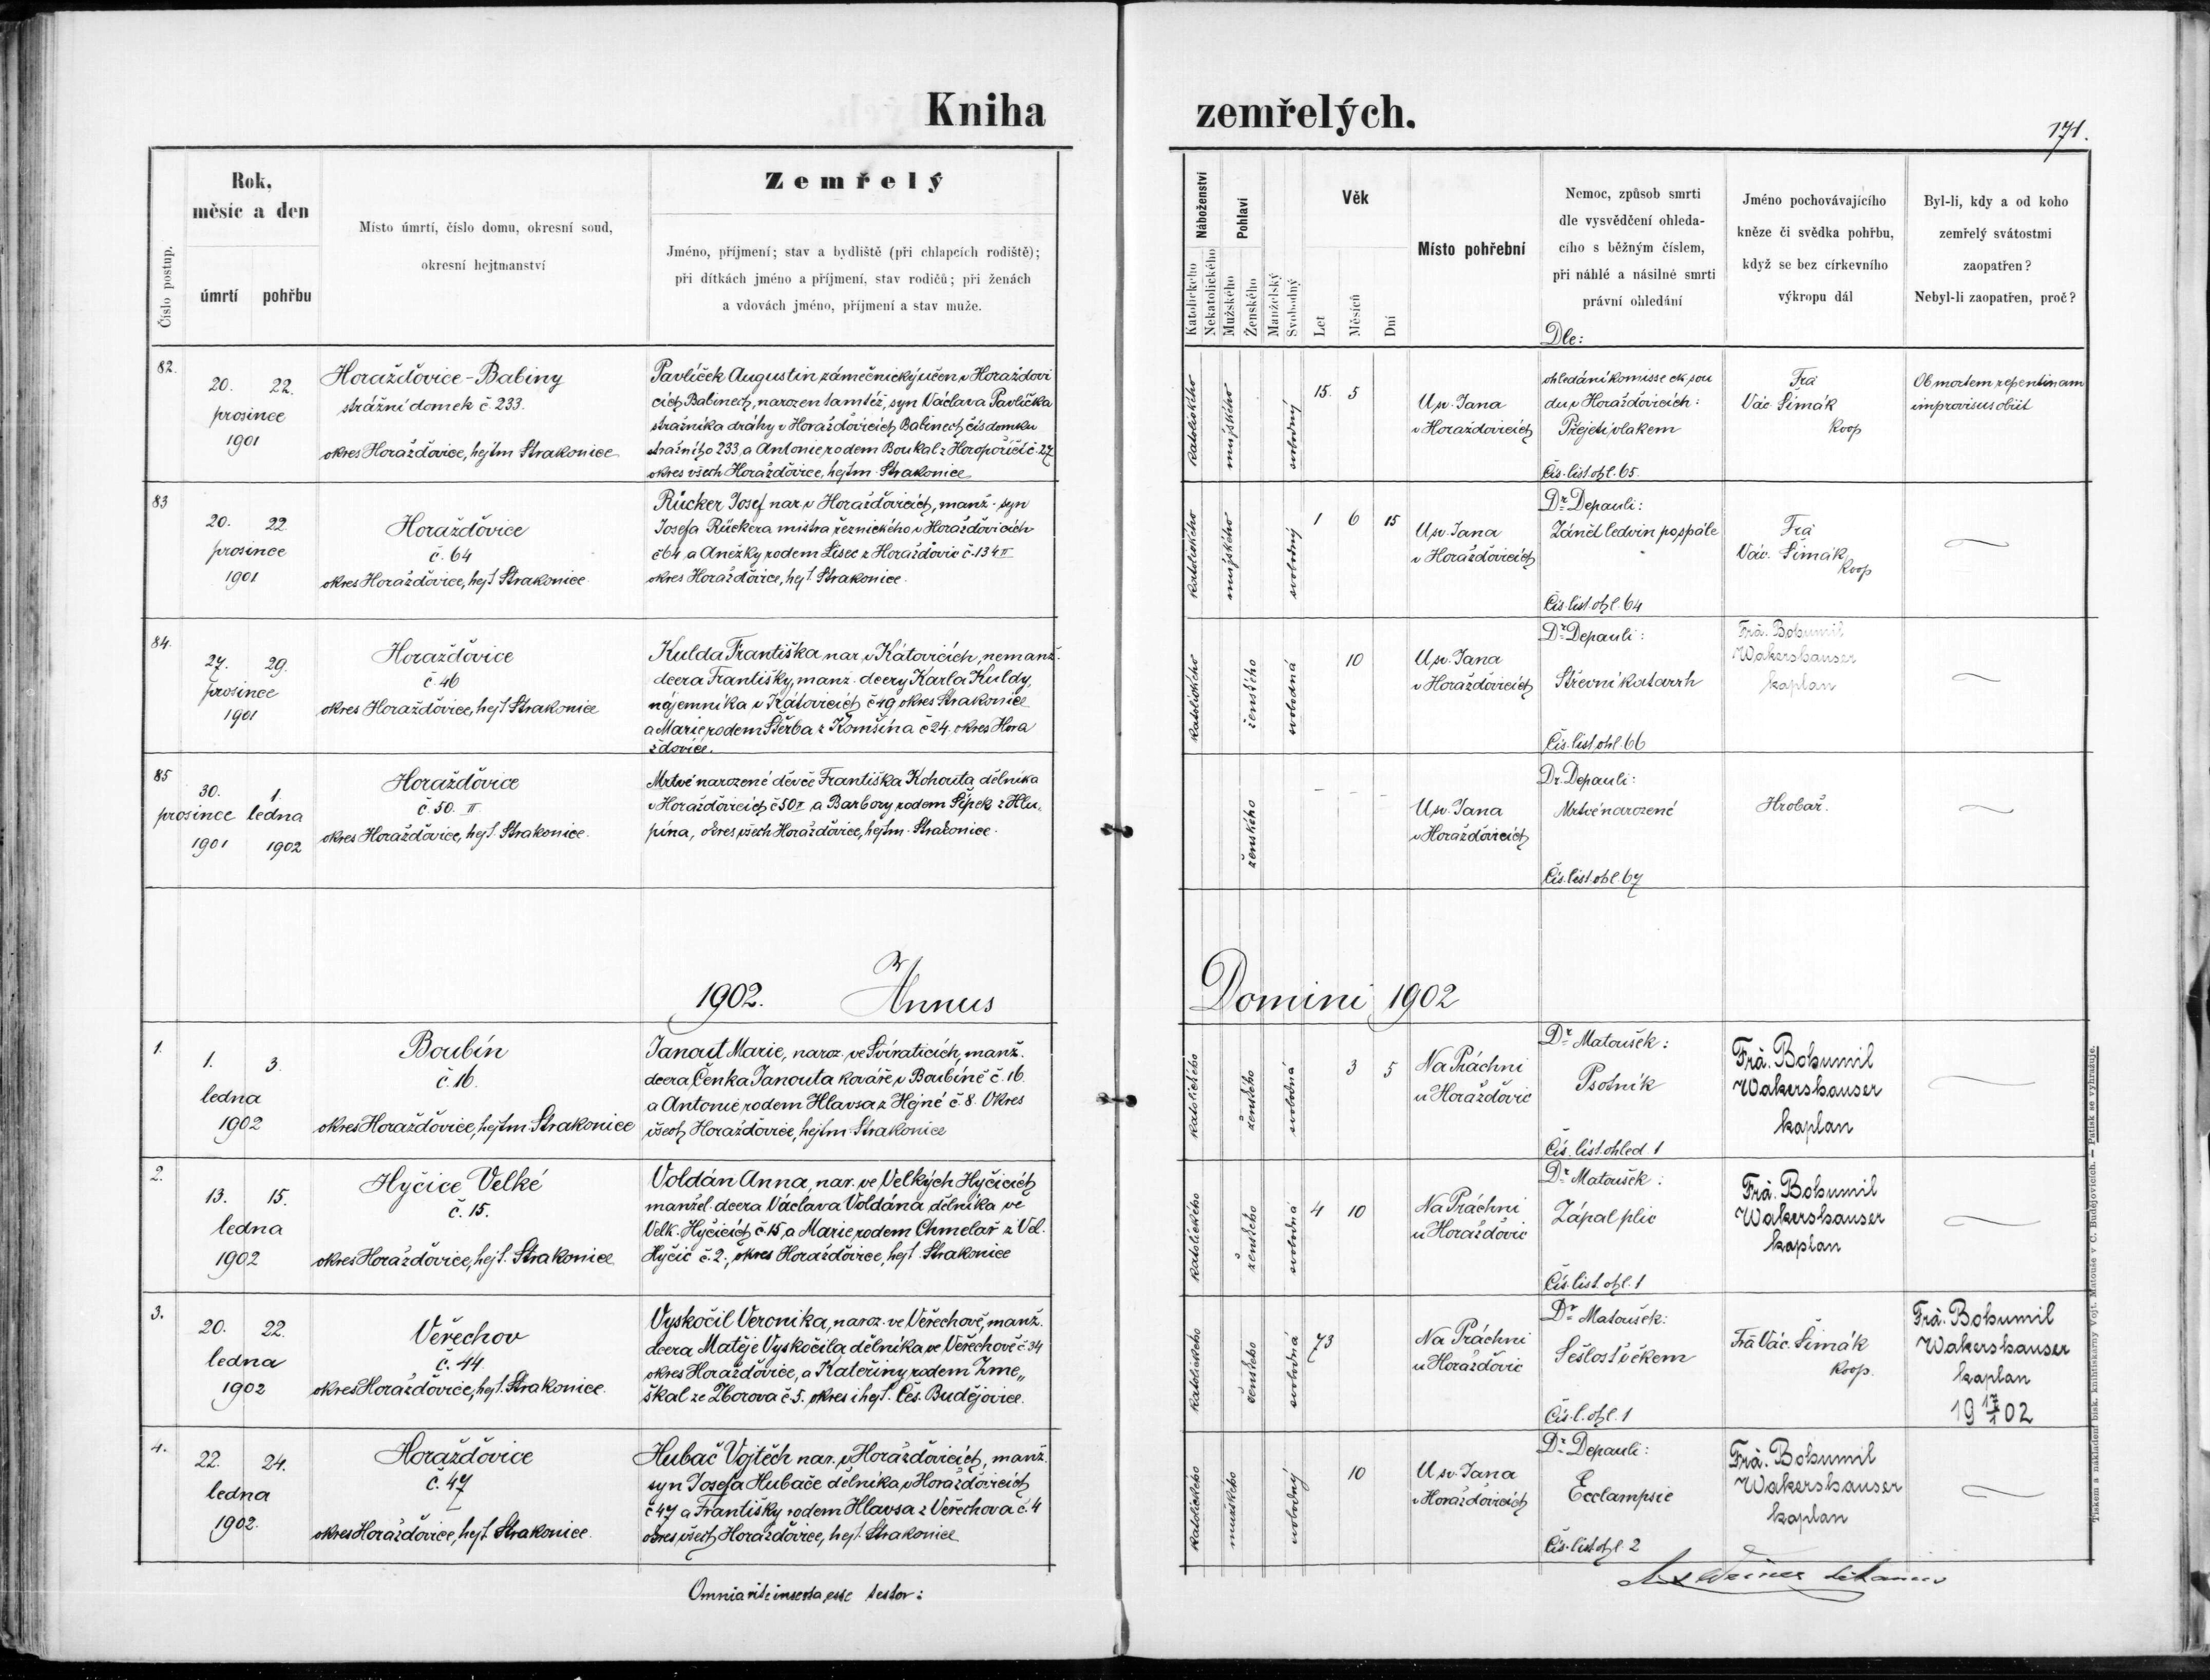 Kniha zemřelých.
171.
Číslo postup.
Rok, měsíc a den
úmrtí
pohřbu
Místo úmrtí, číslo domu, okresní soud,
okresní hejtmanství
Zemřelý
Jméno, příjmení; stav a bydliště (při chlapcích rodiště);
při dítkách jméno a příjmení, stav rodičů; při ženách
a vdovách jméno, příjmení a stav muže.
Náboženství
Katolického
Nekatolického
Pohlaví
Mužského
Ženského
Manželský
Svobodný
Věk
Let
Měsíců
Dní
Místo pohřební
Nemoc, způsob smrti
dle vysvědčení ohleda-
cího s běžným číslem,
při náhlé a násilné smrti
právní ohledání
Dle:
Jméno pochovávajícího
kněze či svědka pohřbu,
když se bez církevního
výkropu dál
Byl-li, kdy a od koho
zemřelý svátostmi
zaopatřen?
Nebyl-li zaopatřen, proč?
82.
20. 22.
prosince
1901
Horažďovice-Babiny
strážní domek č 233.
okres Horažďovice, hejtm Strakonice
Pavlíček Augustin zámečnický učen v Horažďovi
cích Babinech, narozen tamtéž, syn Václava Pavlíčka
strážníka dráhy v Horažďovicích Babinech čís domku
strážního 233, a Antonie rodem Boukal z Horopoříčí č. 27
okres všech Horažďovice, hejtm. Strakonice
katolického
mužského
svobodný
15. 5
U sv. Jana
v Horažďovicích
ohledání komisse ck sou
du v Horažďovicích:
Přejetí vlakem
Čís. list. ohl. 65.
Frà
Vác. Šimák
koop
Ob mortem repentinam
improvisus obiit
83
20. 22.
prosince
1901
Horažďovice
č. 64
okres Horažďovice, hejt. Strakonice.
Rücker Josef nar. v Horažďovicích, manž. syn
Josefa Rückera mistra řeznického v Horažďovicích
č 64 a Anežky rodem Lisec z Horažďovic č. 134 II
okres Horažďovice, hejt. Strakonice.
katolického
mužského
svobodný
1 6 15
U sv. Jana
v Horažďovicích
Dr. Depauli:
Zánět ledvin po spále
Čís. list. ohl. 64
Frà
Vác. Šimák
koop
84.
27. 29.
prosince
1901
Horažďovice
č. 46
okres Horažďovice, hejt Strakonice
Kulda Františka nar. v Kátovicích, nemanž.
dcera Františky, manž. dcery Karla Kuldy,
nájemníka v Kátovicích č 19 okres Strakonice
a Marie rodem Štěrba z Komšína č 24. okres Hora
žďovice.
katolického
ženského
svobodná
10
U sv. Jana
v Horažďovicích
Dr. Depauli:
Střevní katarrh
Čís. list. ohl. 66
Frà. Bohumil
Wakershauser
kaplan
85
30. 1.
prosince ledna
1901 1902
Horažďovice
č. 50. II
okres Horažďovice, hejt. Strakonice.
Mrtvě narozené děvče Františka Kohouta dělníka
v Horažďovicích č 50 II a Barbory rodem Šípek z Hlu„
pína, okres všech Horažďovice, hejtm. Strakonice.
ženského
U sv. Jana
v Horažďovicích
Dr. Depauli:
Mrtvě narozené
Čís. list. ohl. 67
Hrobař.
1902. Annus Domini 1902
1.
1. 3.
ledna
1902
Boubín
č. 16.
okres Horažďovice, hejtm. Strakonice
Janout Marie, naroz. ve Svíraticích, manž.
dcera Čenka Janouta kováře v Boubíně č. 16.
a Antonie rodem Hlavsa z Hejné č. 8. Okres
všech Horažďovice, hejtm. Strakonice
katolického
ženského
svobodná
3 5
Na Práchni
u Horažďovic
Dr. Matoušek:
Psotník
Čís. list. ohled. 1
Frà. Bohumil
Wakershauser
kaplan
2.
13. 15.
ledna
1902
Hyčice Velké
č. 15.
okres Horažďovice, hejt. Strakonice
Voldán Anna, nar. ve Velkých Hyčicích
manžel. dcera Václava Voldána dělníka ve
Velk. Hyčicích č. 15, a Marie rodem Chmelař z Vel.
Hyčic č. 2., okres Horažďovice, hejt. Strakonice
katolického
ženského
svobodná
4 10
Na Práchni
u Horažďovic
Dr. Matoušek:
Zápal plic
Čís. list. ohl. 1
Frà. Bohumil
Wakershauser
kaplan
3.
20. 22.
ledna
1902
Veřechov
č. 44
okres Horažďovice, hejt. Strakonice.
Vyskočil Veronika, naroz. ve Veřechově, manž.
dcera Matěje Vyskočila dělníka ve Veřechově č. 34
okres Horažďovice, a Kateřiny rodem Zme„
škal ze Zborova č 5. okres i hejt. Čes. Budějovice.
katolického
ženského
svobodná
73
Na Práchni
u Horažďovic
Dr. Matoušek:
Sešlost věkem
Čís. l. ohl. 1
Frà Vác. Šimák
koop.
Frà. Bohumil
Wakershauser
kaplan
19 17/1 02
4.
22. 24.
ledna
1902.
Horažďovice
č. 47
okres Horažďovice, hejt. Strakonice.
Hubač Vojtěch nar. v Horažďovicích, manž.
syn Josefa Hubače dělníka, v Horažďovicích
č 47 a Františky rodem Hlavsa z Veřechova č. 4
okres všech Horažďovice, hejt. Strakonice
katolického
mužského
svobodný
10
U sv. Jana
v Horažďovicích
Dr. Depauli:
Ecclampsie
Čís. list. ohl 2
Frà. Bohumil
Wakershauser
kaplan
Omnia rite inserta esse testor:
Tiskem a nákladem bisk. knihtiskárny Vojt. Matouše v C. Budějovicích. — Patisk se vyhražuje.